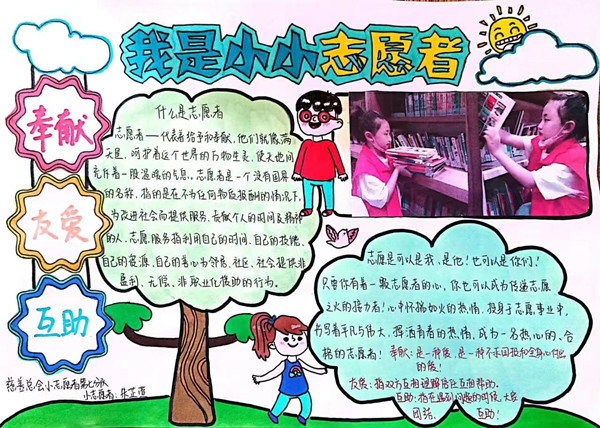 我是小小志愿者
奉献
友爱
互助
什么是志愿者
志愿者——代表着给予和奉献,他们就像满
天星,呵护着这个世界的万物生长,使天地间
充斥着一股温暖的气息,志愿者是一个没有国界
的名称,指的是在不为任何物质报酬的情况下,
为改进社会而提供服务,贡献个人的时间及精神
的人,志愿服务指利用自己的时间,自己的技能,
自己的资源,自己的善心为邻居、社区、社会提供非
盈利、无偿、非职业化援助的行为。
志愿是可以是我、是他!也可以是你们!
只要你有着一颗志愿者的心,你也可以成为传递志愿
之火的接力者!心中怀揣如火的热情,投身于志愿事业中,
书写着平凡与伟大,挥洒青春的热情,成为一名热心的、合
格的志愿者!奉献:是一种爱,是一种不求回报和全身心付出
的爱!
友爱:指双方互相理解信任互相帮助。
互助:指在遇到问题的时候,大家
团结、互助!
慈善总会小志愿者第七分队
小志愿者: